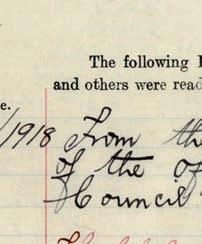 The following
and others were read
e.
/1918 From the
of the of
Council